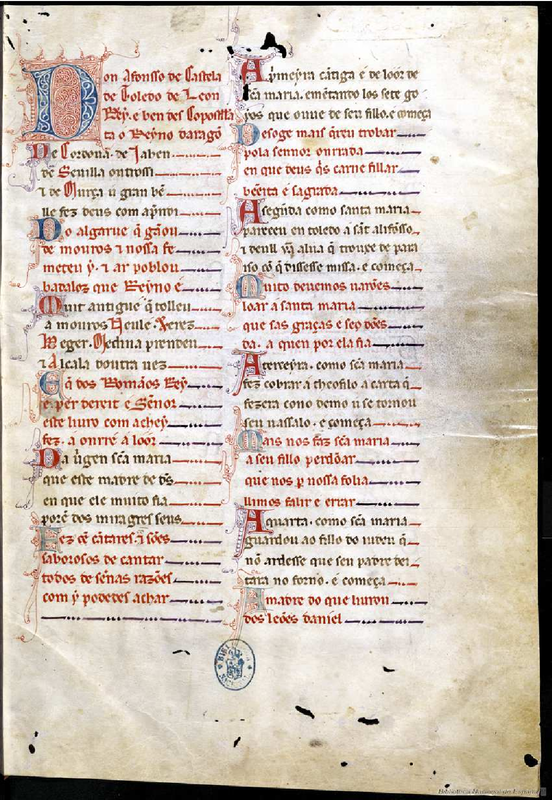 Don Afonsso de Castela
de Toledo de Leon
Rey. e ben des Conpostella
ta o Reyno daragõ
De Cordoua. de Jahen
de Seuilla outrossi
⁊ de Murça u̇ gran bẽ
lle fez deus com ap̃ndi
Do algarue q̃ gãou
de mouros ⁊ nossa fe
meteu y. ⁊ ar poblou
badalloz que Reyno e
Muit antigue q̃ tolleu
a mouros Neule. Xerez
Beger. Medina prendeu
⁊ Alcala doutra uez
E q̃ dos Romãos Rey
e per dereit e Sẽnor
este liuro com achey
fez. a onrr e a loor
Da u̇gen sc̃a maria
que este madre de d̃s
en que ele muito fia
porẽ dos miragres seus
Fez cẽ cãtares. ⁊ sões
saborosos de cantar
todos de sennas razões
com y podedes achar
A p̃meyra cãtiga e de loor de
sc̃a maria. emẽtando los sete go
yos que ouue de seu fillo. e comeca
Des oge mais q̃reu trobar
pola sennor onrrada
en que deus q̃s carne fillar
bẽeita e sagrada
A segũda como santa maria
pareceu en toledo a sãt alifonsso
⁊ deull ũa alua q̃ trouxe de parai
iso cõ q̃ dissesse missa. e começa
Muito deuemos uarões
loar a santa maria
que sas graças e seus dões
da. a quen por ela fia
A terceyra. como sc̃a maria
fez cobrar a theofilo a carta q̃
fezera cono demo u se tornou
seu uassalo. e começa
Mais nos faz sc̃a maria
a seu fillo perdõar
que nos p̱ nossa folia
llimos falir e errar
A quarta. como sc̃a maria
guardou ao fillo do iudeu q̃
nõ ardesse que seu padre dei
tara no forno. e começa
A madre do que liurou
dos leões daniel